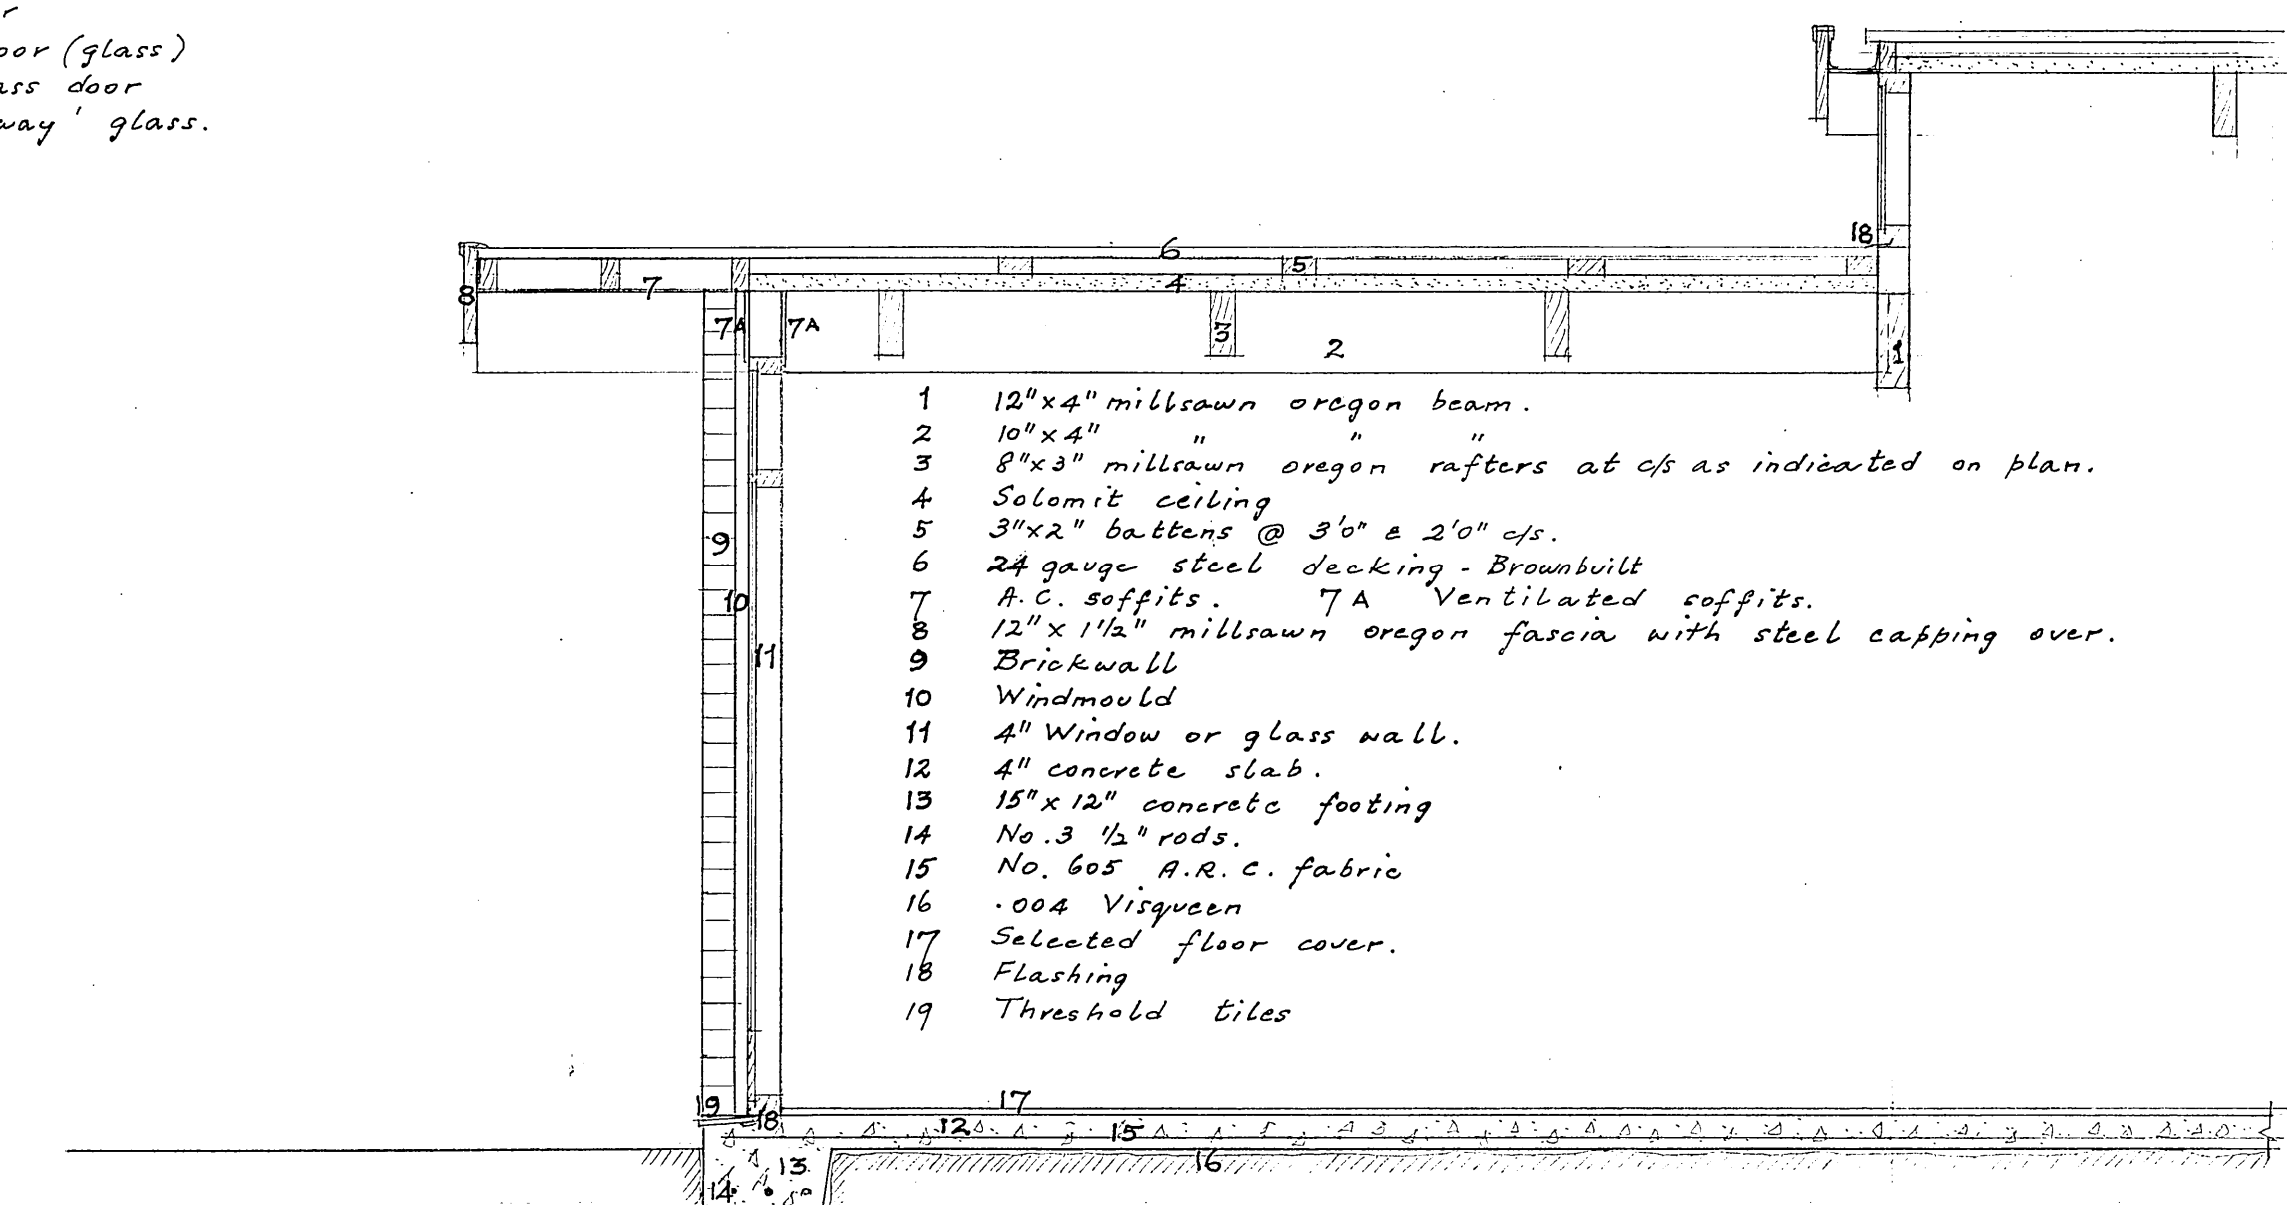 oor (glass)
ass door
way' glass.
18
6
5
7
4
8
7A
7A
3
2
1
1 12"x4" millsawn oregon beam.
2 10"x4" " " "
3 8"x3" millsawn oregon rafters at c/s as indicated on plan.
4 Solomit ceiling
5 3"x2" battens @ 3'0" & 2'0" c/s.
6 24 gauge steel decking - Brownbuilt
7 A.C. soffits. 7A Ventilated soffits.
8 12"x 1 1/2" millsawn oregon fascia with steel capping over.
9 Brickwall
10 Windmould
11 4" Window or glass wall.
12 4" concrete slab.
13 15"x 12" concrete footing
14 No.3 1/2" rods.
15 No. 605 A.R.C. fabric
16 .004 Visqueen
17 Selected floor cover.
18 Flashing
19 Threshold tiles
9
10
11
19
17
18
12
15
13
16
14